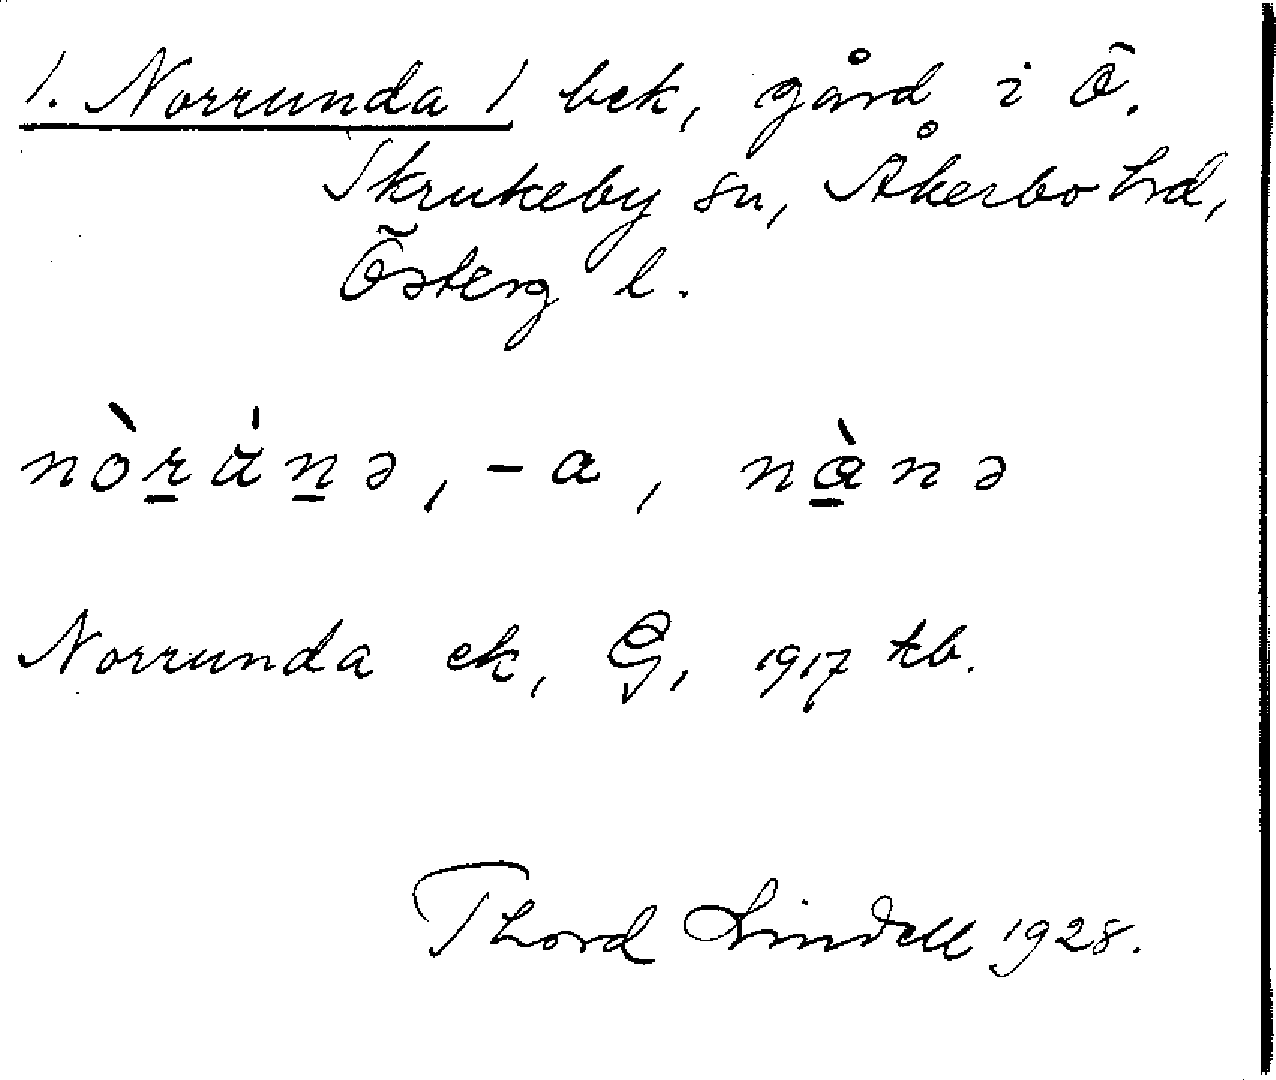 1. Norrunda 1 bek, gård i Ö.
Skrukeby sn, Åkerbo hrd,
Österg l.
nòṟu̇ṉə, -a, nà̱nə
Norrunda ek, G, 1917 tb.
Thord Lindell 1928.